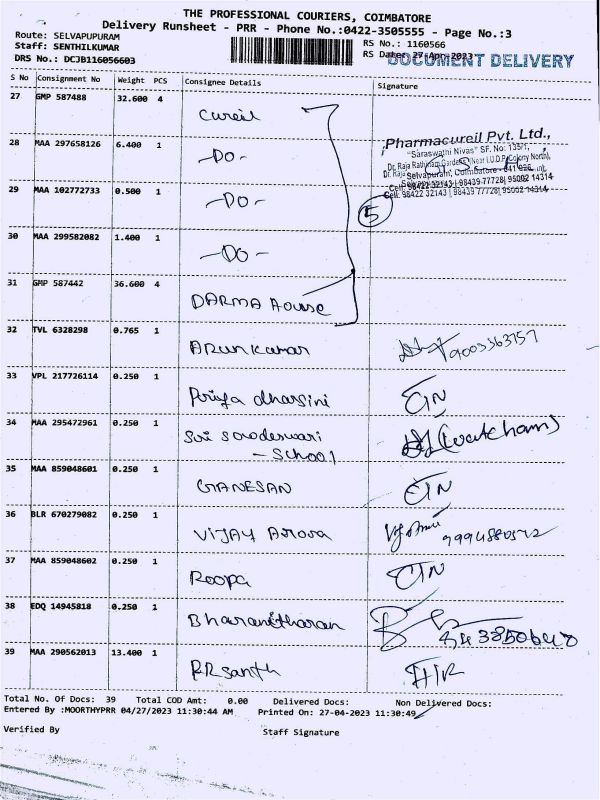 THE PROFESSIONAL COURIERS, COIMBATORE
Delivery Runsheet - PRR - Phone No.:0422-3505555 - Page No.:3
Route: SELVAPUPURAM
Staff: SENTHILKUMAR
DRS No.: DCJB116056603
RS No.: 1160566
RS Date: 27-Apr-2023
DOCUMENT DELIVERY
S No Consignment No Weight PCS Consignee Details Signature
27 GMP 587488 32.600 4 Cureil
28 MAA 297658126 6.400 1 -DO-
Pharmacureil Pvt. Ltd.,
"Saraswathi Nivas" SF. No: 135/1,
Dr. Raja Rathinam Gardens (Near I.U.D.P. Colony North),
Selvapuram, Coimbatore - 641 026
Cell: 98422 32143 | 98439 77728 | 95002 14314
29 MAA 102772733 0.500 1 -DO-
5
30 MAA 299582082 1.400 1 -DO-
31 GMP 587442 36.600 4 DARMA House
32 TVL 6328298 0.765 1 Arunkumar
33 VPL 217726114 0.250 1 Priya dharsini
34 MAA 295472961 0.250 1
- School
(watchman)
35 MAA 859048601 0.250 1 GANESAN
36 BLR 670279082 0.250 1 VIJAY Arora
37 MAA 859048602 0.250 1 Roopa
38 EDQ 14945818 0.250 1 Bharanitharan
39 MAA 290562013 13.400 1 RRsanth
Total No. Of Docs: 39 Total COD Amt: 0.00 Delivered Docs: Non Delivered Docs:
Entered By :MOORTHYPRR 04/27/2023 11:30:44 AM Printed On: 27-04-2023 11:30:49
Verified By Staff Signature